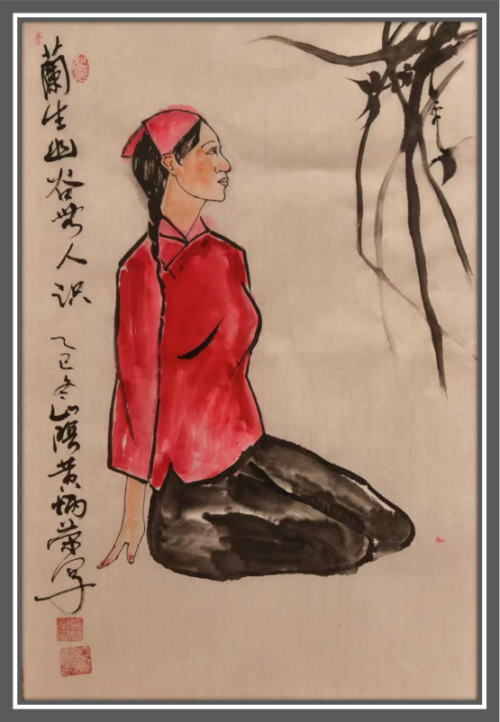 蘭生幽谷無人识 乙巳冬山陰黄炳荣写